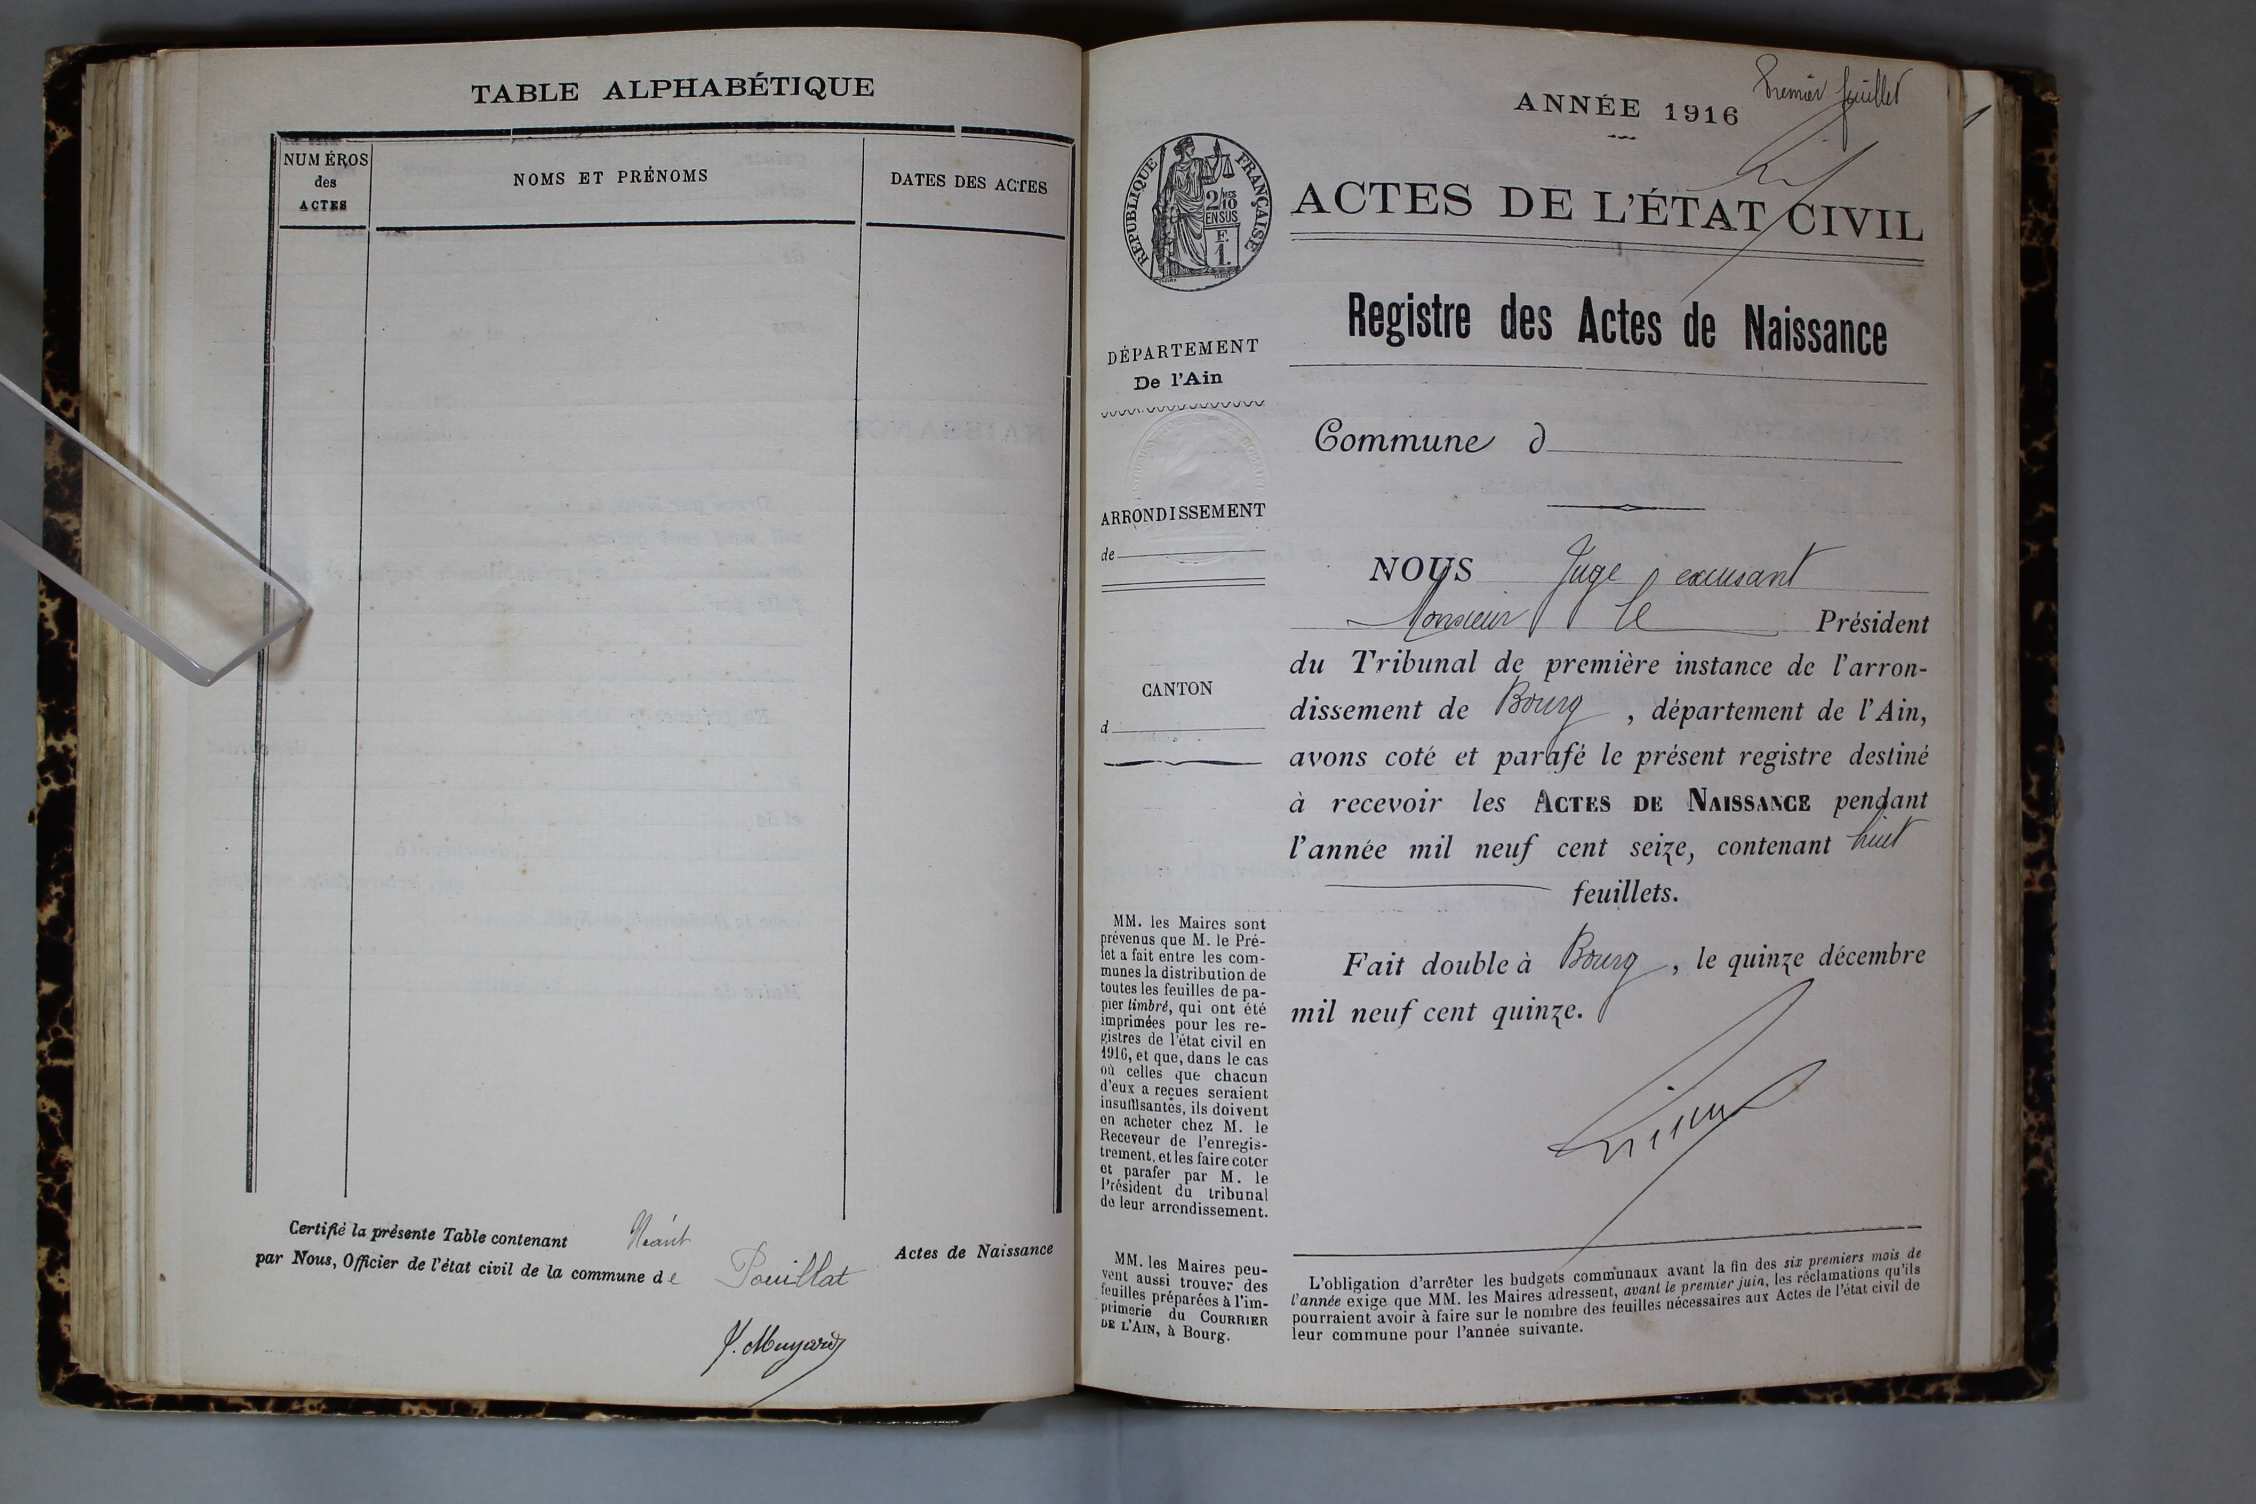 TABLE ALPHABÉTIQUE
NUMÉROS
des
ACTES
NOMS ET PRÉNOMS
DATES DES ACTES
Certifié la présente Table contenant Néant Actes de Naissance
par Nous, Officier de l'état civil de la commune de Pouillat
Premier feuillet
ANNÉE 1916
RÉPUBLIQUE FRANÇAISE
2/10
EN SUS
F.
1.
ACTES DE L'ÉTAT CIVIL
Registre des Actes de Naissance
DÉPARTEMENT
De l'Ain
ARRONDISSEMENT
de
CANTON
d
MM. les Maires sont
prévenus que M. le Pré-
fet a fait entre les com-
munes la distribution de
toutes les feuilles de pa-
pier timbré, qui ont été
imprimées pour les re-
gistres de l'état civil en
1916, et que, dans le cas
où celles que chacun
d'eux a reçues seraient
insuffisantes, ils doivent
en acheter chez M. le
Receveur de l'enregis-
trement, et les faire coter
et parafer par M. le
Président du tribunal
de leur arrondissement.
MM. les Maires peu-
vent aussi trouver des
feuilles préparées à l'im-
primerie du COURRIER
DE L'AIN, à Bourg.
Commune d
NOUS Juge excusant
Monsieur le Président
du Tribunal de première instance de l'arron-
dissement de Bourg, département de l'Ain,
avons coté et parafé le présent registre destiné
à recevoir les ACTES DE NAISSANCE pendant
l'année mil neuf cent seize, contenant huit
feuillets.
Fait double à Bourg, le quinze décembre
mil neuf cent quinze.
L'obligation d'arrêter les budgets communaux avant la fin des six premiers mois de
l'année exige que MM. les Maires adressent, avant le premier juin, les réclamations qu'ils
pourraient avoir à faire sur le nombre des feuilles nécessaires aux Actes de l'état civil de
leur commune pour l'année suivante.